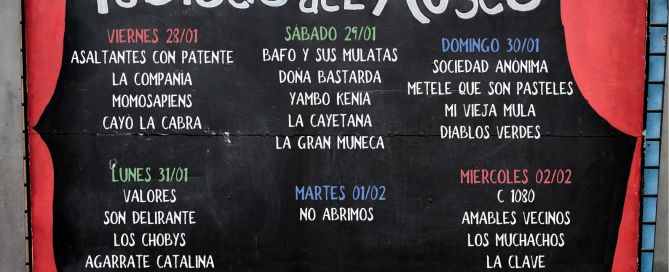 del Museo
VIERNES 28/01
ASALTANTES CON PATENTE
LA COMPAÑIA
MOMOSAPIENS
CAYO LA CABRA
SÁBADO 29/01
BAFO Y SUS MULATAS
DOÑA BASTARDA
YAMBO KENIA
LA CAYETANA
LA GRAN MUÑECA
DOMINGO 30/01
SOCIEDAD ANÓNIMA
METELE QUE SON PASTELES
MI VIEJA MULA
DIABLOS VERDES
LUNES 31/01
VALORES
SON DELIRANTE
LOS CHOBYS
AGARRATE CATALINA
MARTES 01/02
NO ABRIMOS
MIÉRCOLES 02/02
C 1080
AMABLES VECINOS
LOS MUCHACHOS
LA CLAVE